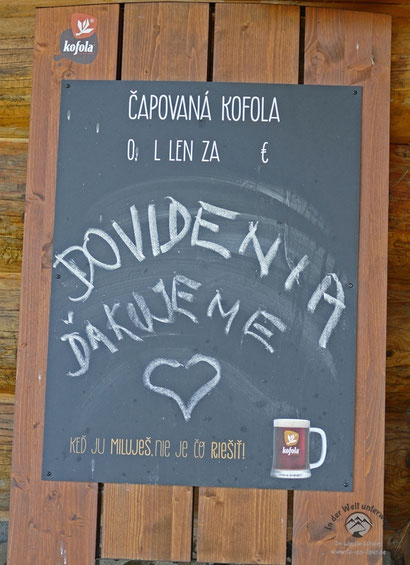 kofola
ČAPOVANÁ KOFOLA
0, L LEN ZA €
DOVIDENIA
ĎAKUJEME
KEĎ JU MILUJEŠ, NIE JE ČO RIEŠIŤ!
kofola
In der Welt unterwegs